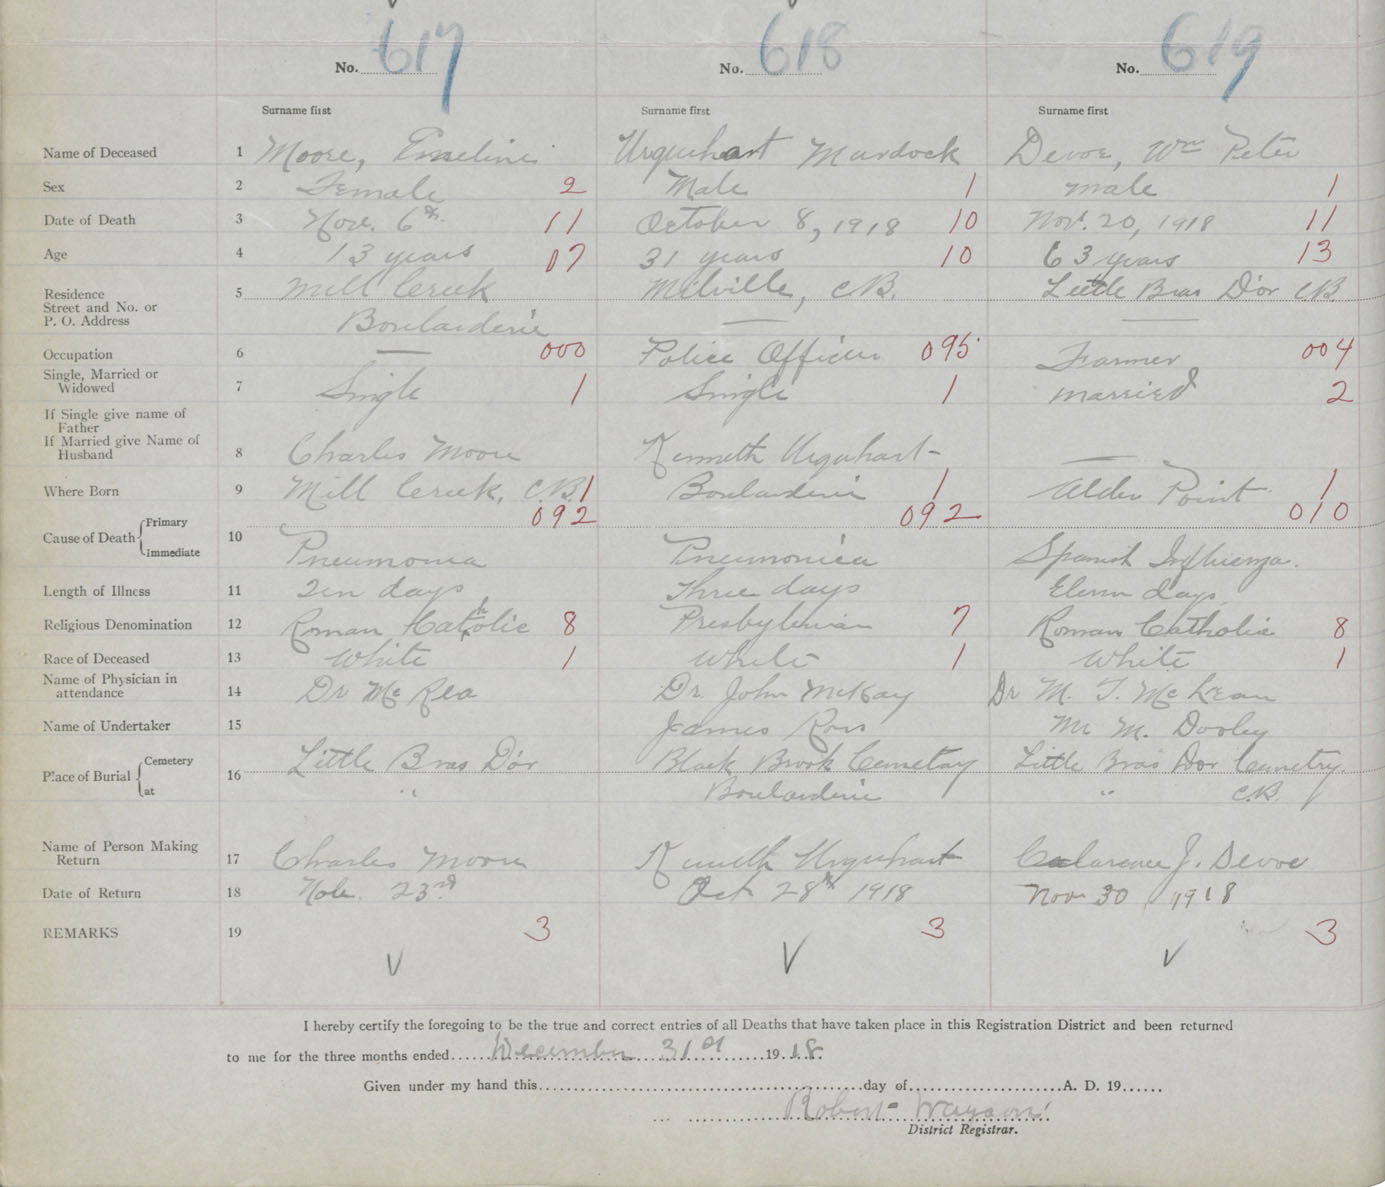 617 618 619
No. No. No.
Surname first Surname first Surname first
Name of Deceased 1 Moore, Emeline Urquehart Murdock Devoe, Wm Peter
Sex 2 Female 2 Male 1 male 1
Date of Death 3 Nov. 6th. 11 October 8, 1918 10 Nov. 20, 1918 11
Age 4 13 years 07 31 years 10 63 years 13
Residence 5 Mill Creek Melville, C.B. Little Bras D'or C.B.
Street and No. or
P. O. Address Boularderie —
Occupation 6 — 000 Police Officer 095 Farmer 004
Single, Married or
Widowed 7 Single 1 Single 1 married 2
If Single give name of
Father
If Married give Name of
Husband 8 Charles Moore Kenneth Urquhart —
Where Born 9 Mill Creek, C.B. 1 Boularderie 1 Alder Point 1
092 092 010
Cause of Death Primary
Immediate 10 Pneumonia Pneumonica Spanish Influenza.
Length of Illness 11 Ten days Three days Eleven days
Religious Denomination 12 Roman Catholic 8 Presbyterian 7 Roman Catholic 8
Race of Deceased 13 White 1 White 1 White 1
Name of Physician in
attendance 14 Dr Mc Rea Dr. John McKay Dr M. T. McLean
Name of Undertaker 15 James Ross Mr M. Dooley
Place of Burial Cemetery 16 Little Bras D'or Black Brook Cemetay Little Bras Dor Cemetry.
at " Boularderie " C.B.
Name of Person Making
Return 17 Charles Moore Kenneth Urquhart Clarence J. Devoe
Date of Return 18 Nov. 23rd. Oct 28th 1918 Nov 30 1918
REMARKS 19 3 3 3
I hereby certify the foregoing to be the true and correct entries of all Deaths that have taken place in this Registration District and been returned
to me for the three months ended December 31st 1918.
Given under my hand this day of A. D. 19
Robert
District Registrar.